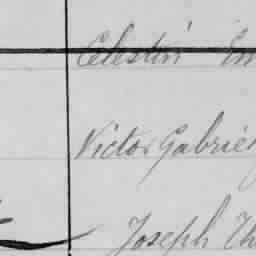 Celestin Em
Victor Gabriel
Joseph Th